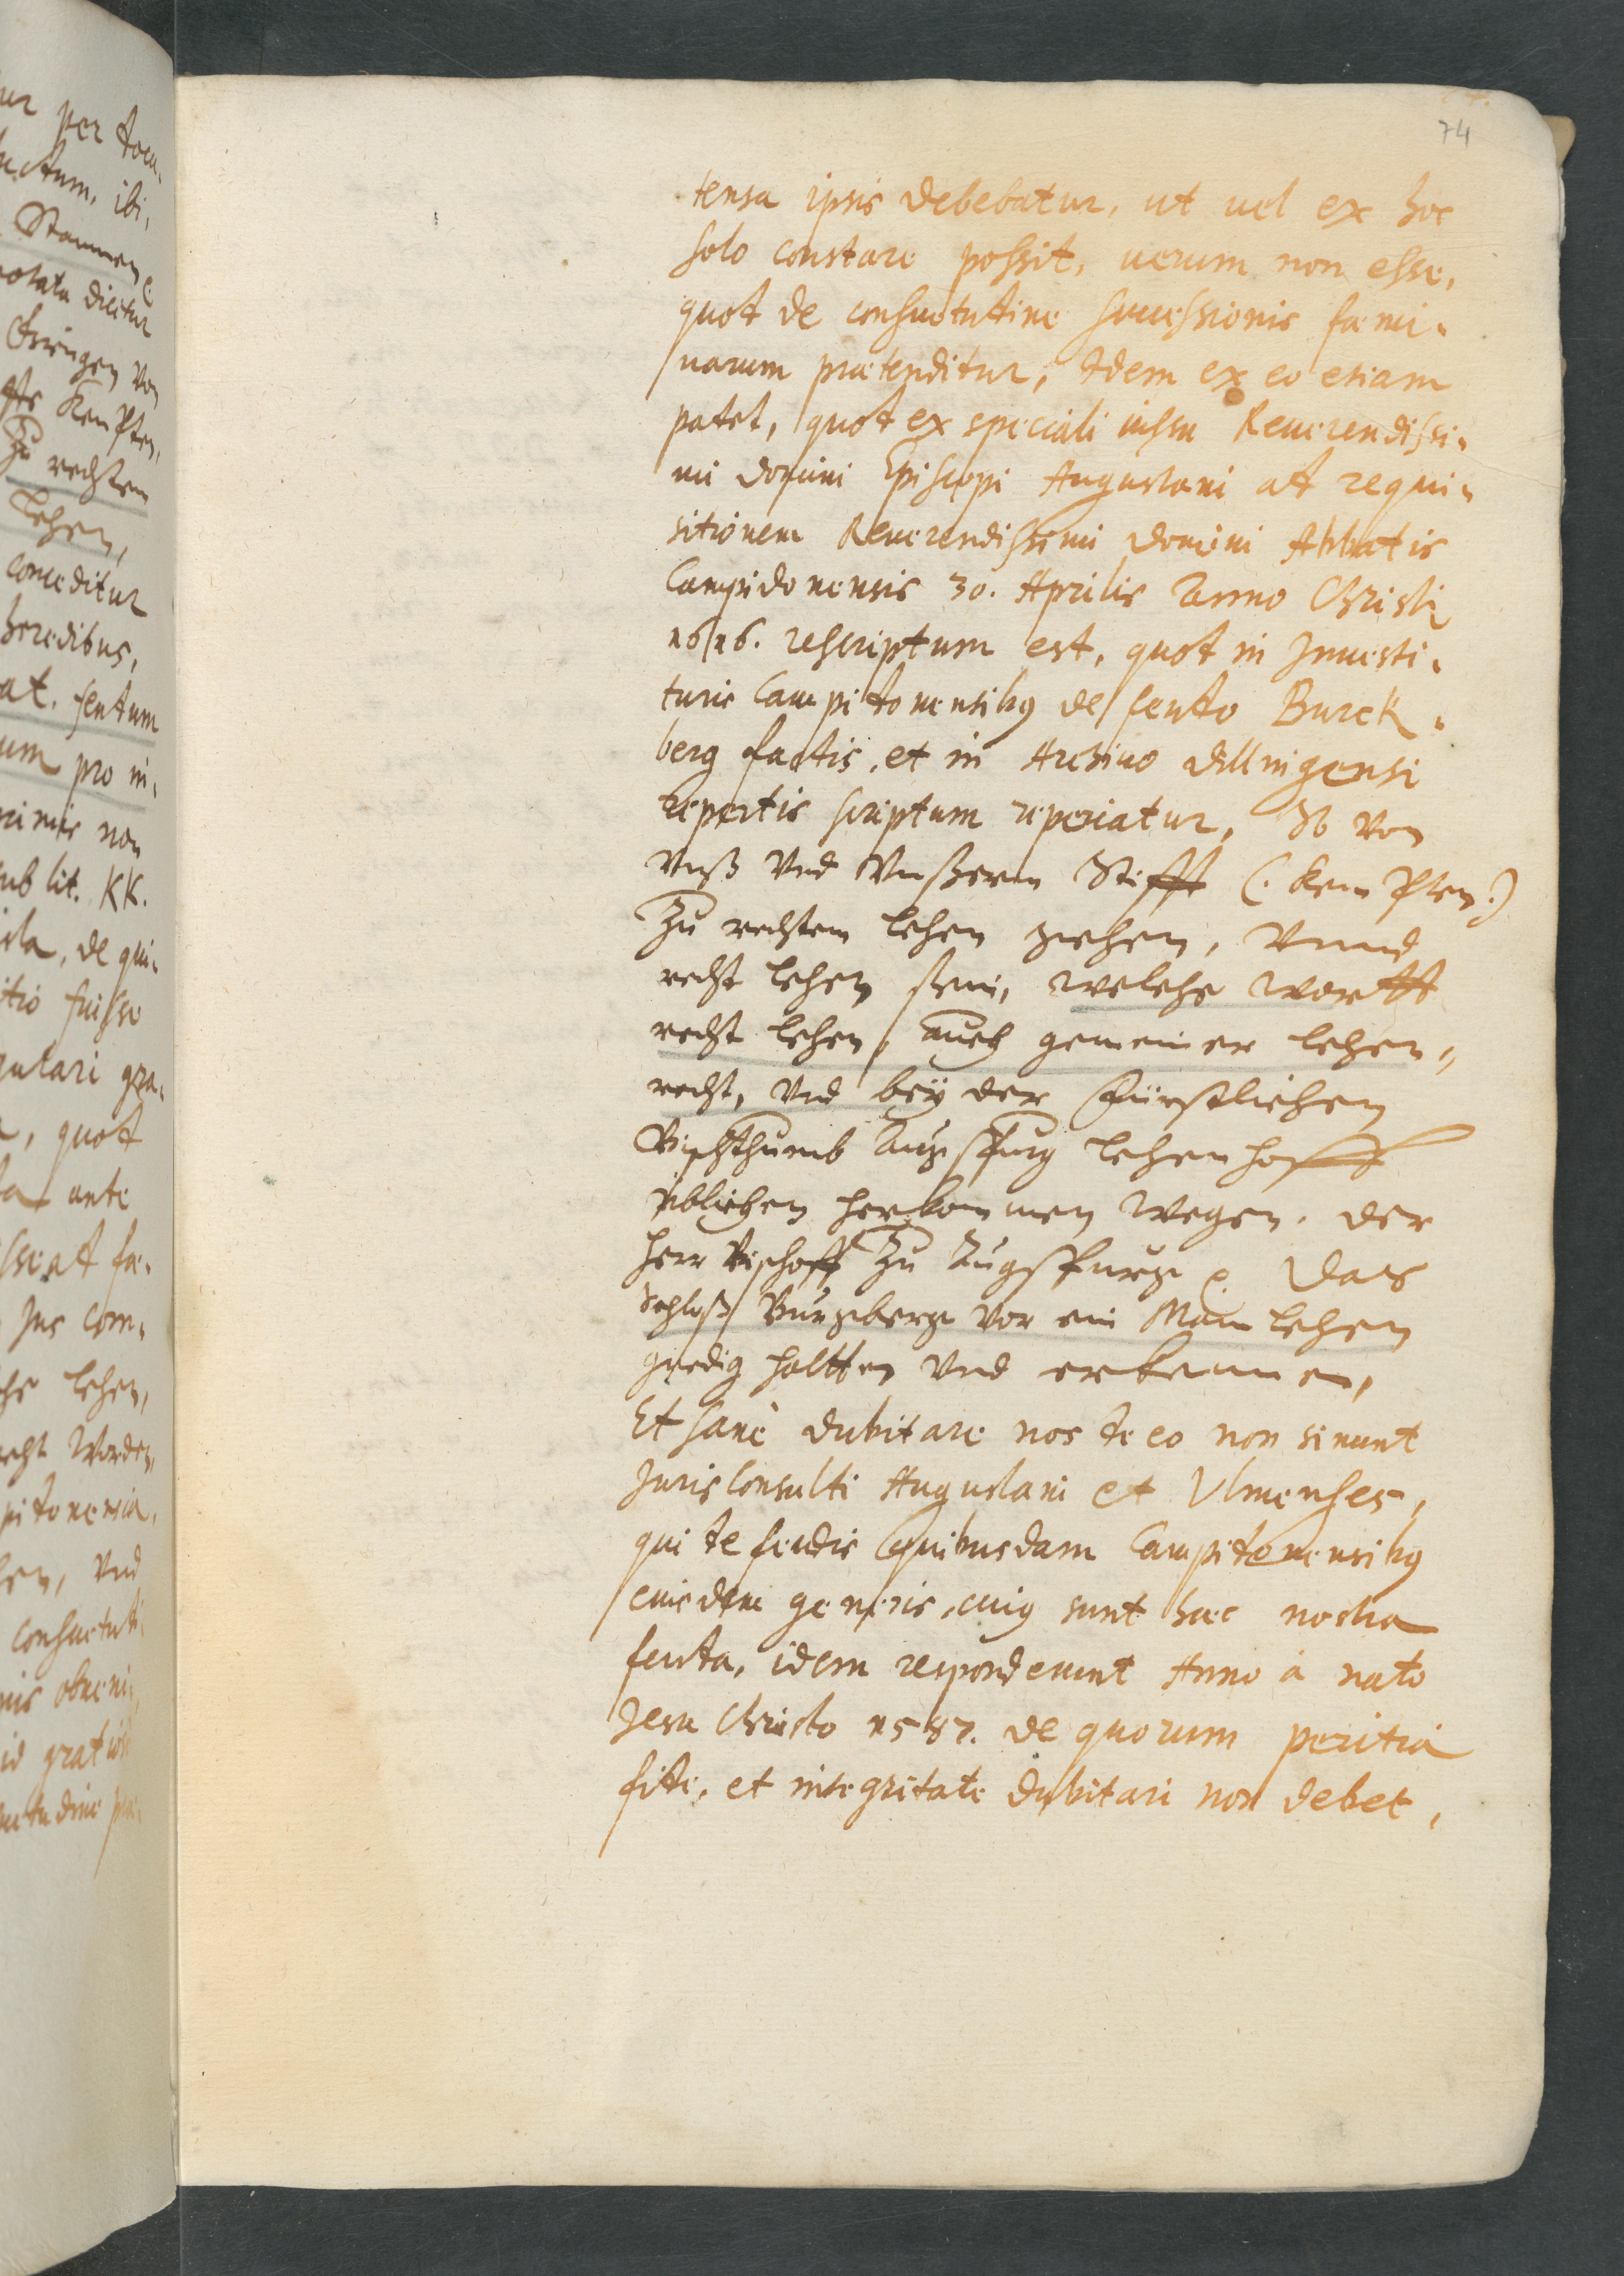 74
tensa ipsis debebatur, ut uel ex hoc
solo constare possit, uerum non esse,
quod de consuetudine successionis fæmi-
narum prætenditur; Idem ex eo etiam
patet, quod ex speciali iussu Reuerendissi-
mi domini Episcopi Augustani ad requi-
sitionem Reuerendissimi domini Abbatis
Campidonensis 30. Aprilis Anno Christi
1616. rescriptum est, quod in Inuesti-
turis Campidonensibus de feudo Burck-
berg factis, et in Archiuo dillingensi
repertis scriptum reperiatur, von
vnß vnd vnßerm Stifft (: Kempten :)
zu rechtem lehen gehen, vnnd
recht lehen sein, welche wortt
recht lehen, auch gemeiner lehen-
recht, vnd beÿ der fürstlichen
Bischthumb Augspurg lehenhoff
üblichen herkommen wegen. der
herr Bischoff zu Augspurg das
Schloß Burgberg vor ein Manlehen
gnedig haltten vnd erkennen,
Et sanè dubitare nos de eo non sinunt
Jurisconsulti Augustani et Vlmenses,
qui de feudis quibusdam Campidonensibus
eiusdem generis, cuius sunt hæc nostra
feuda, idem responderunt Anno à nato
Jesu Christo 1587. de quorum peritia
fide, et integritate dubitari non debet,
ur per
ctum, ibi,
Stammen
notata dicitur
von
Kempten,
zu rechtem
lehen,
conceditur
heredibus,
at. feudum
um pro in-
non
sub lit. KK.
, de qui-
itio fuisse
gulari gra-
, quod
ante
ad fæ-
Jus com-
lehen,
recht worden,
pidonensia,
en, vnd
consuetudi
id gratiose